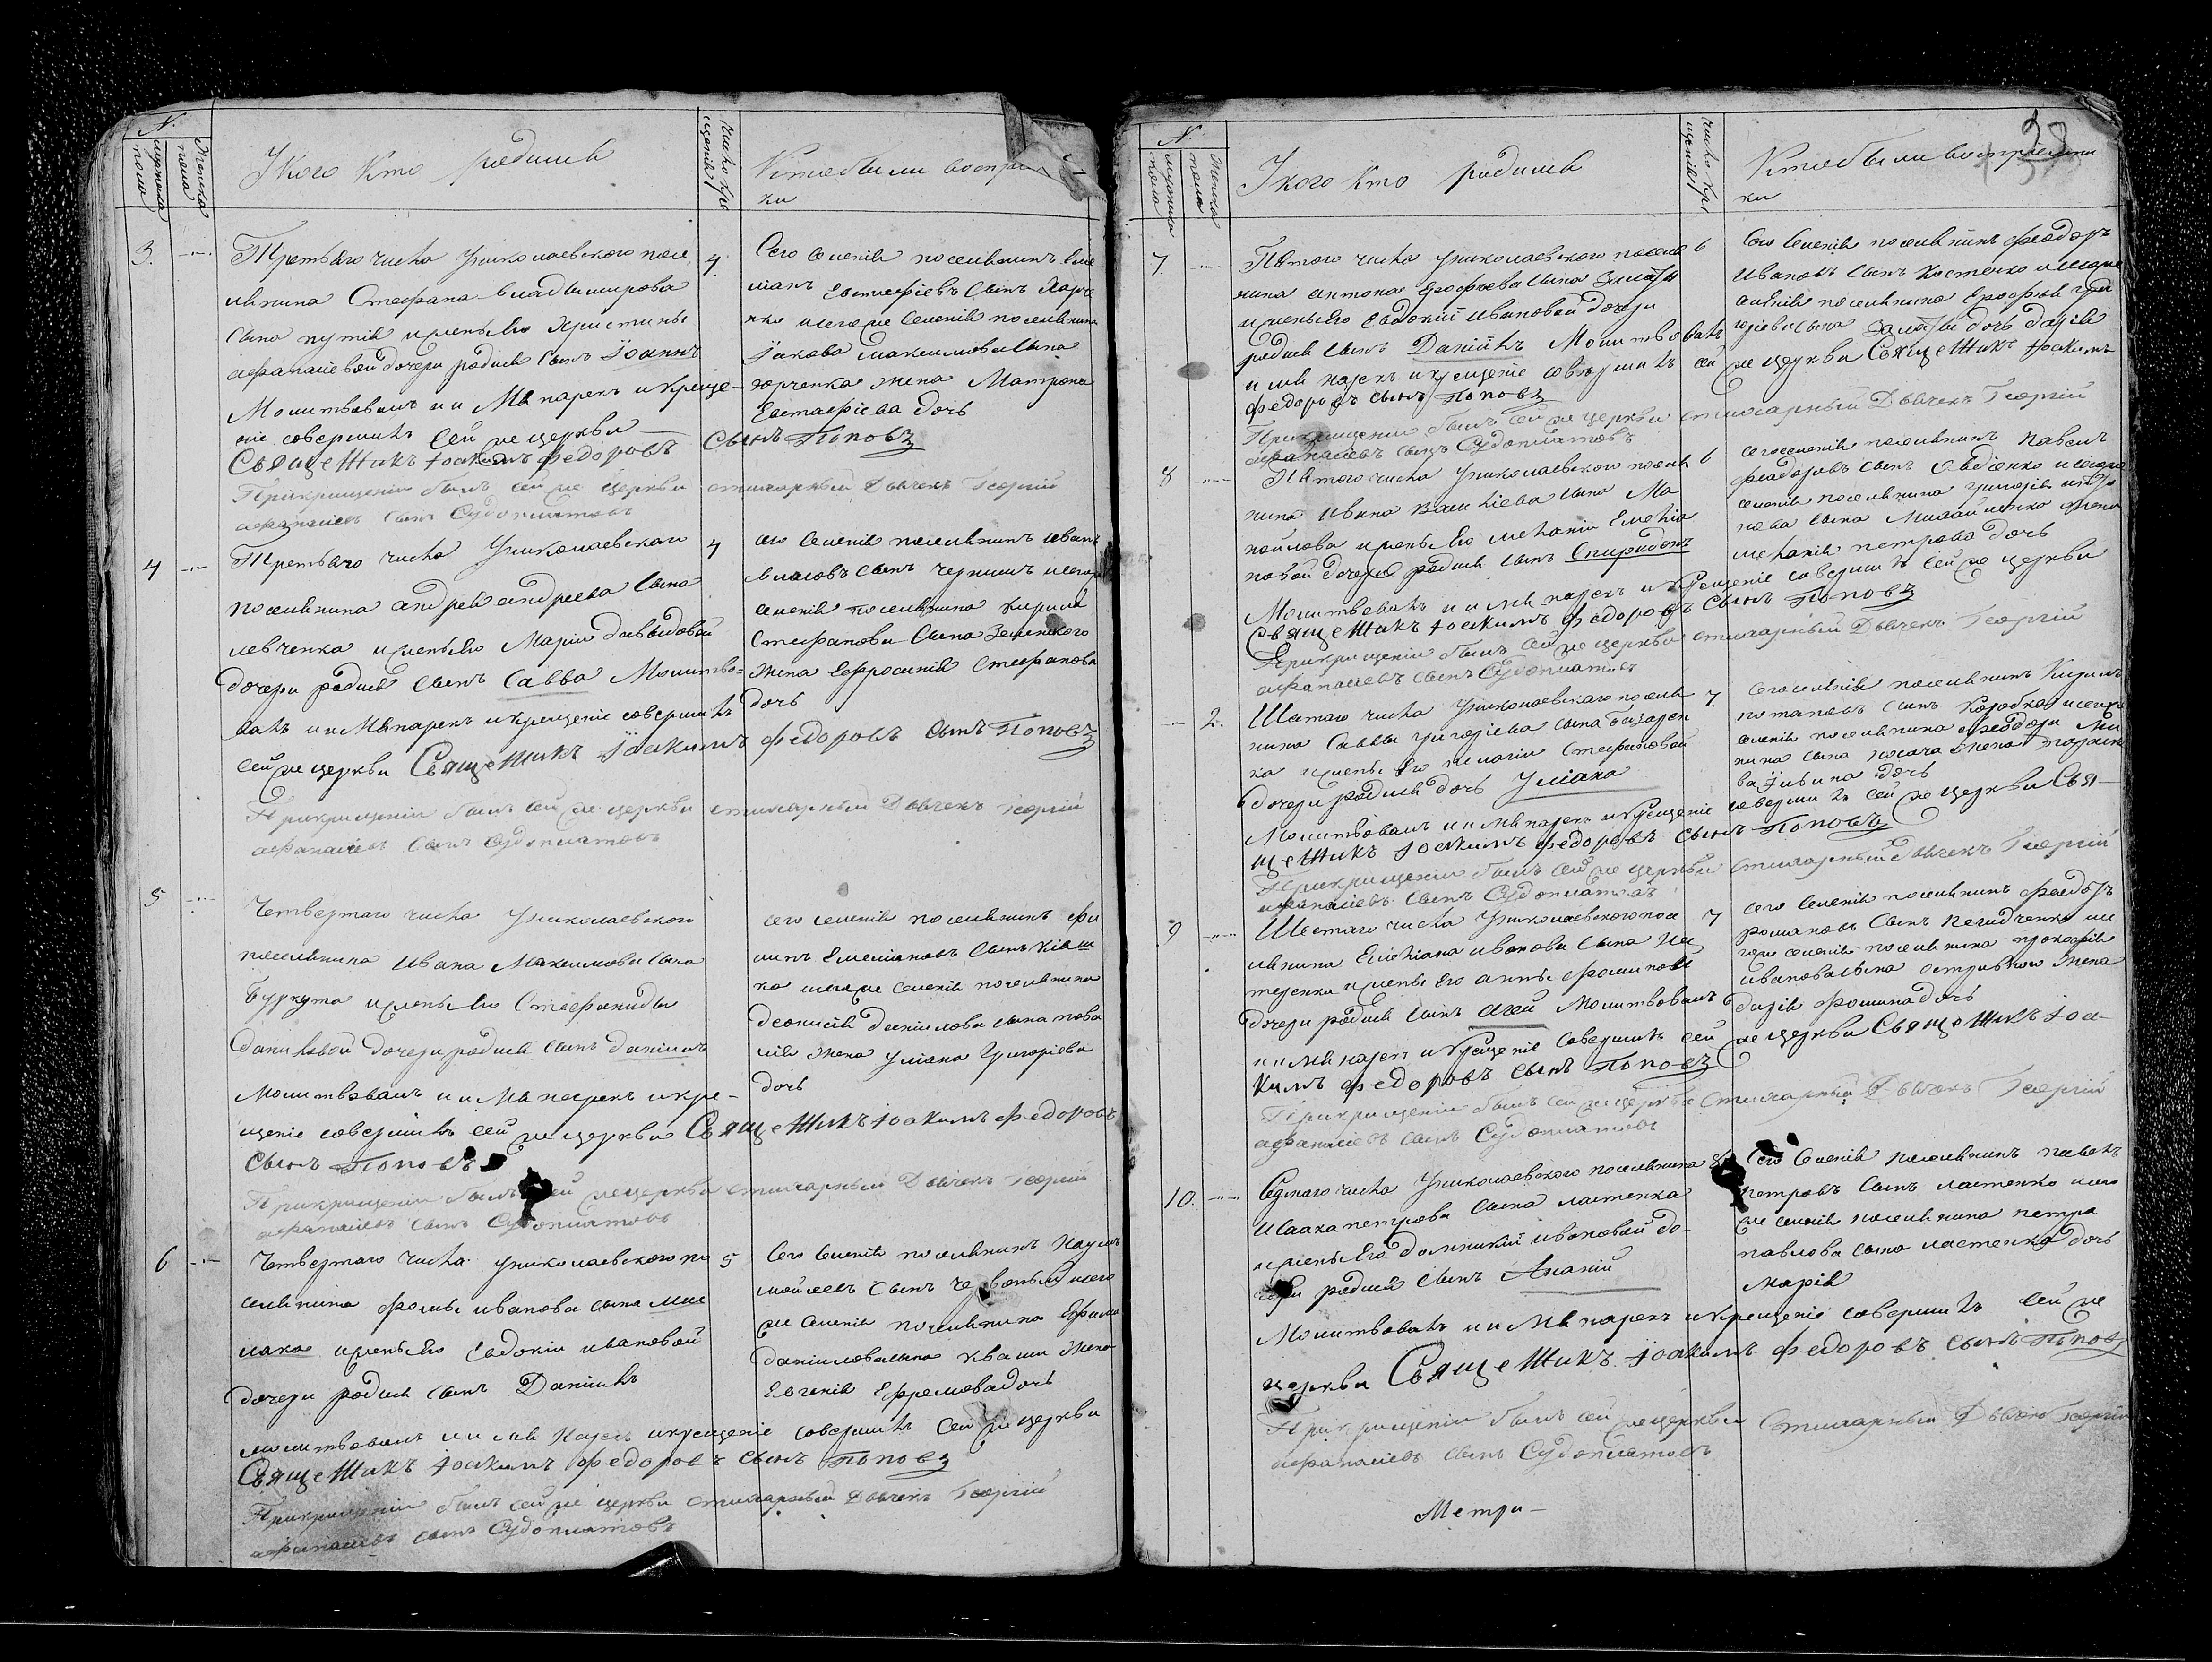 N.
мужеска пола
Женска пола
У кого кто родился
Число кре
щенія
Кто были воспри
ки
3.
Третьяго числа Уиколаевского посе
лянина Стефана владымирова
сына путія ижены его Христины
афанасіевой дочери родился сынъ Іоаннъ
Молитвовалъ иимя нарекъ икреще-
ніе совершилъ сей же церкви
СвящеННикъ Іоакимъ федоровъ сынъ Поповъ
Прикрещеніи былъ сей же церкви стихарный Дьячекъ Георгій
афанасіевъ сынъ Судоплатовъ
4.
Сего селенія поселянинъ Еме
ліанъ Евстафіевъ сынъ Харче
нко исегоже селенія поселянина
Іакова Максимова сына
юрченка жена Матрона
Евстафіева дочь
4
Третьяго числа Униколаевскаго
поселянина андрея андреева сына
левченка ижены его Маріи давыдовой
дочери родился сынъ Савва Молитво-
валъ иимя нарекъ икрещеніе совершилъ
сей же церкви СвящеННикъ Іоакимъ федоровъ сынъ Поповъ
Прикрещеніи былъ сей же церкви стихарный Дьячекъ Георгій
афанасіевъ сынъ Судоплатовъ
4
сего селенія поселянинъ иванъ
власовъ сынъ чернышъ исегоже
селенія поселянина кирила
Стефанова сына Зеленского
жена Ефросинія Стефанова
дочь
5
Четвертаго числа Униколаевского
поселянина Ивана Максимова сына
Буркута ижены его Стефаниды
даниловой дочери родился сынъ даніилъ
Молитвовалъ иимя нарекъ икре-
щеніе совершилъ сей же церкви СвящеННикъ Іоакимъ федоровъ
сынъ Поповъ
Прикрещеніи былъ сей же церкви стихарный Дьячекъ Георгій
афанасіевъ сынъ Судоплатовъ
сего селенія поселянинъ фи
липъ Емеліановъ сынъ Кіяш
ко исегоже селенія поселянина
деонисія даніилова сына
жена Уліана Григоріева
дочь
6
Четвертаго числа униколаевского по
селянина фомы иванова сына
ижены его Евдокіи ивановой
дочери родился сынъ Даніилъ
молитвовалъ иимя нарекъ икрещеніе совершилъ сей же церкви
СвящеННикъ Іоакимъ федоровъ сынъ Поповъ
Прикрещеніи былъ сей же церкви стихарный Дьячекъ Георгій
афанасіевъ сынъ Судоплатовъ
5
Сего селенія поселянинъ Наумъ
мойсеевъ сынъ исего
же селенія поселянина Ефрема
даніилова сына квашы жена
Евгенія Ефремова дочь
38
N.
мужеска пола
Женска пола
У кого кто родился
число кре
щенія
Кто были воспріемни
ки
7.
Пятого числа униколаевского поселя
нина антона Ерофѣева сына
ижены его Евдокіи Ивановой дочери
родился сынъ Даніилъ Молитвовалъ
иимя нарекъ икрещеніе совершилъ сей же церкви СвящеННикъ Іоакимъ
федоровъ сынъ Поповъ
Прикрещеніи былъ сей же церкви стихарный Дьячекъ Георгій
афанасіевъ сынъ Судоплатовъ
6
Сего Селенія поселянинъ феодоръ
Ивановъ сынъ Костенко исегоже
селенія поселянина Ерофѣя григ
оріева сына дочь дарія
8
Пятого числа Униколаевского поселя
нина Ивана Василіева сына
ижены его меланіи Емеліа
новой дочери родился сынъ Спиридонъ
Молитвовалъ иимя нарекъ икрещеніе совершилъ сей же церкви
СвящеННикъ Іоакимъ федоровъ сынъ Поповъ
Прикрещеніи былъ сей же церкви стихарный Дьячекъ Георгій
афанасіевъ сынъ Судоплатовъ
6
сегоселенія поселянинъ павелъ
феодоровъ сынъ Овдіенко исегоже
селенія поселянина григорія
сына жена
меланія петрова дочь
2.
Шестаго числа Униколаевскаго поселя
нина Саввы григоріева сына
ка ижены Его пелагіи Стефановой
дочери родилась дочь Уліана
Молитвовалъ иимя нарекъ икрещеніе совершилъ сей же церкви Свя-
щеННикъ Іоакимъ федоровъ сынъ Поповъ
Прикрещеніи былъ сей же церкви стихарный Дьячекъ Георгій
афанасіевъ сынъ Судоплатовъ
7.
сегоселенія поселянинъ Кирилъ
потаповъ сынъ Коробка исегоже
селенія поселянина феодора
сына носача жена
дочь
9
Шестаго числа Униколаевскогопосе
лянина Емеліана иванова сына Не
теренка ижены Его анны фоминой
дочери родился сынъ агей Молитвовалъ
иимя нарекъ икрещеніе совершилъ сей же церкви СвящеННикъ Іоа-
кимъ федоровъ сынъ Поповъ
Прикрещеніи былъ сей же церкви стихарный Дьячекъ Георгій
афанасіевъ сынъ Судоплатовъ
7
сего селенія поселянинъ феодоръ
романовъ сынъ исе
гоже селенія поселянина прокофія
иванова сына жена
дарія фомина дочь
10.
Седмаго числа Униколаевского поселянина
Исаака петрова сына ластенка
ижены Его домникіи ивановой до-
чери родился сынъ Ананій
Молитвовалъ иимя нарекъ икрещеніе совершилъ сей же
церкви СвящеННикъ Іоакимъ федоровъ сынъ Поповъ
Прикрещеніи былъ сей же церкви стихарный Дьячекъ Георгій
афанасіевъ сынъ Судоплатовъ
8
Сего Селенія поселянинъ павелъ
петровъ сынъ ластенко исего
же селенія поселянина петра
павлова сына ластенка дочь
марія
Метри-